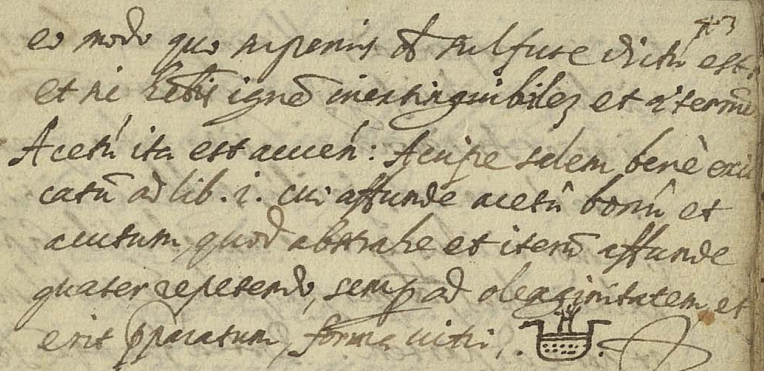 eo modo quo superius de sulfure dictū est.
et si habebis ignē inextinguibilem et æternū
Acetū ita est acuen̄: Accipe salem benè exic
catū ad lib. i. cui affunde acetū bonū et
acutum, quod abstrahe et iterū affunde
quater repetendo, semp ad oleaginitatem, et
erit pparatum, forma vitri,